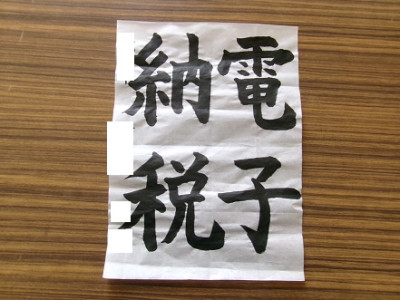 電子
納税